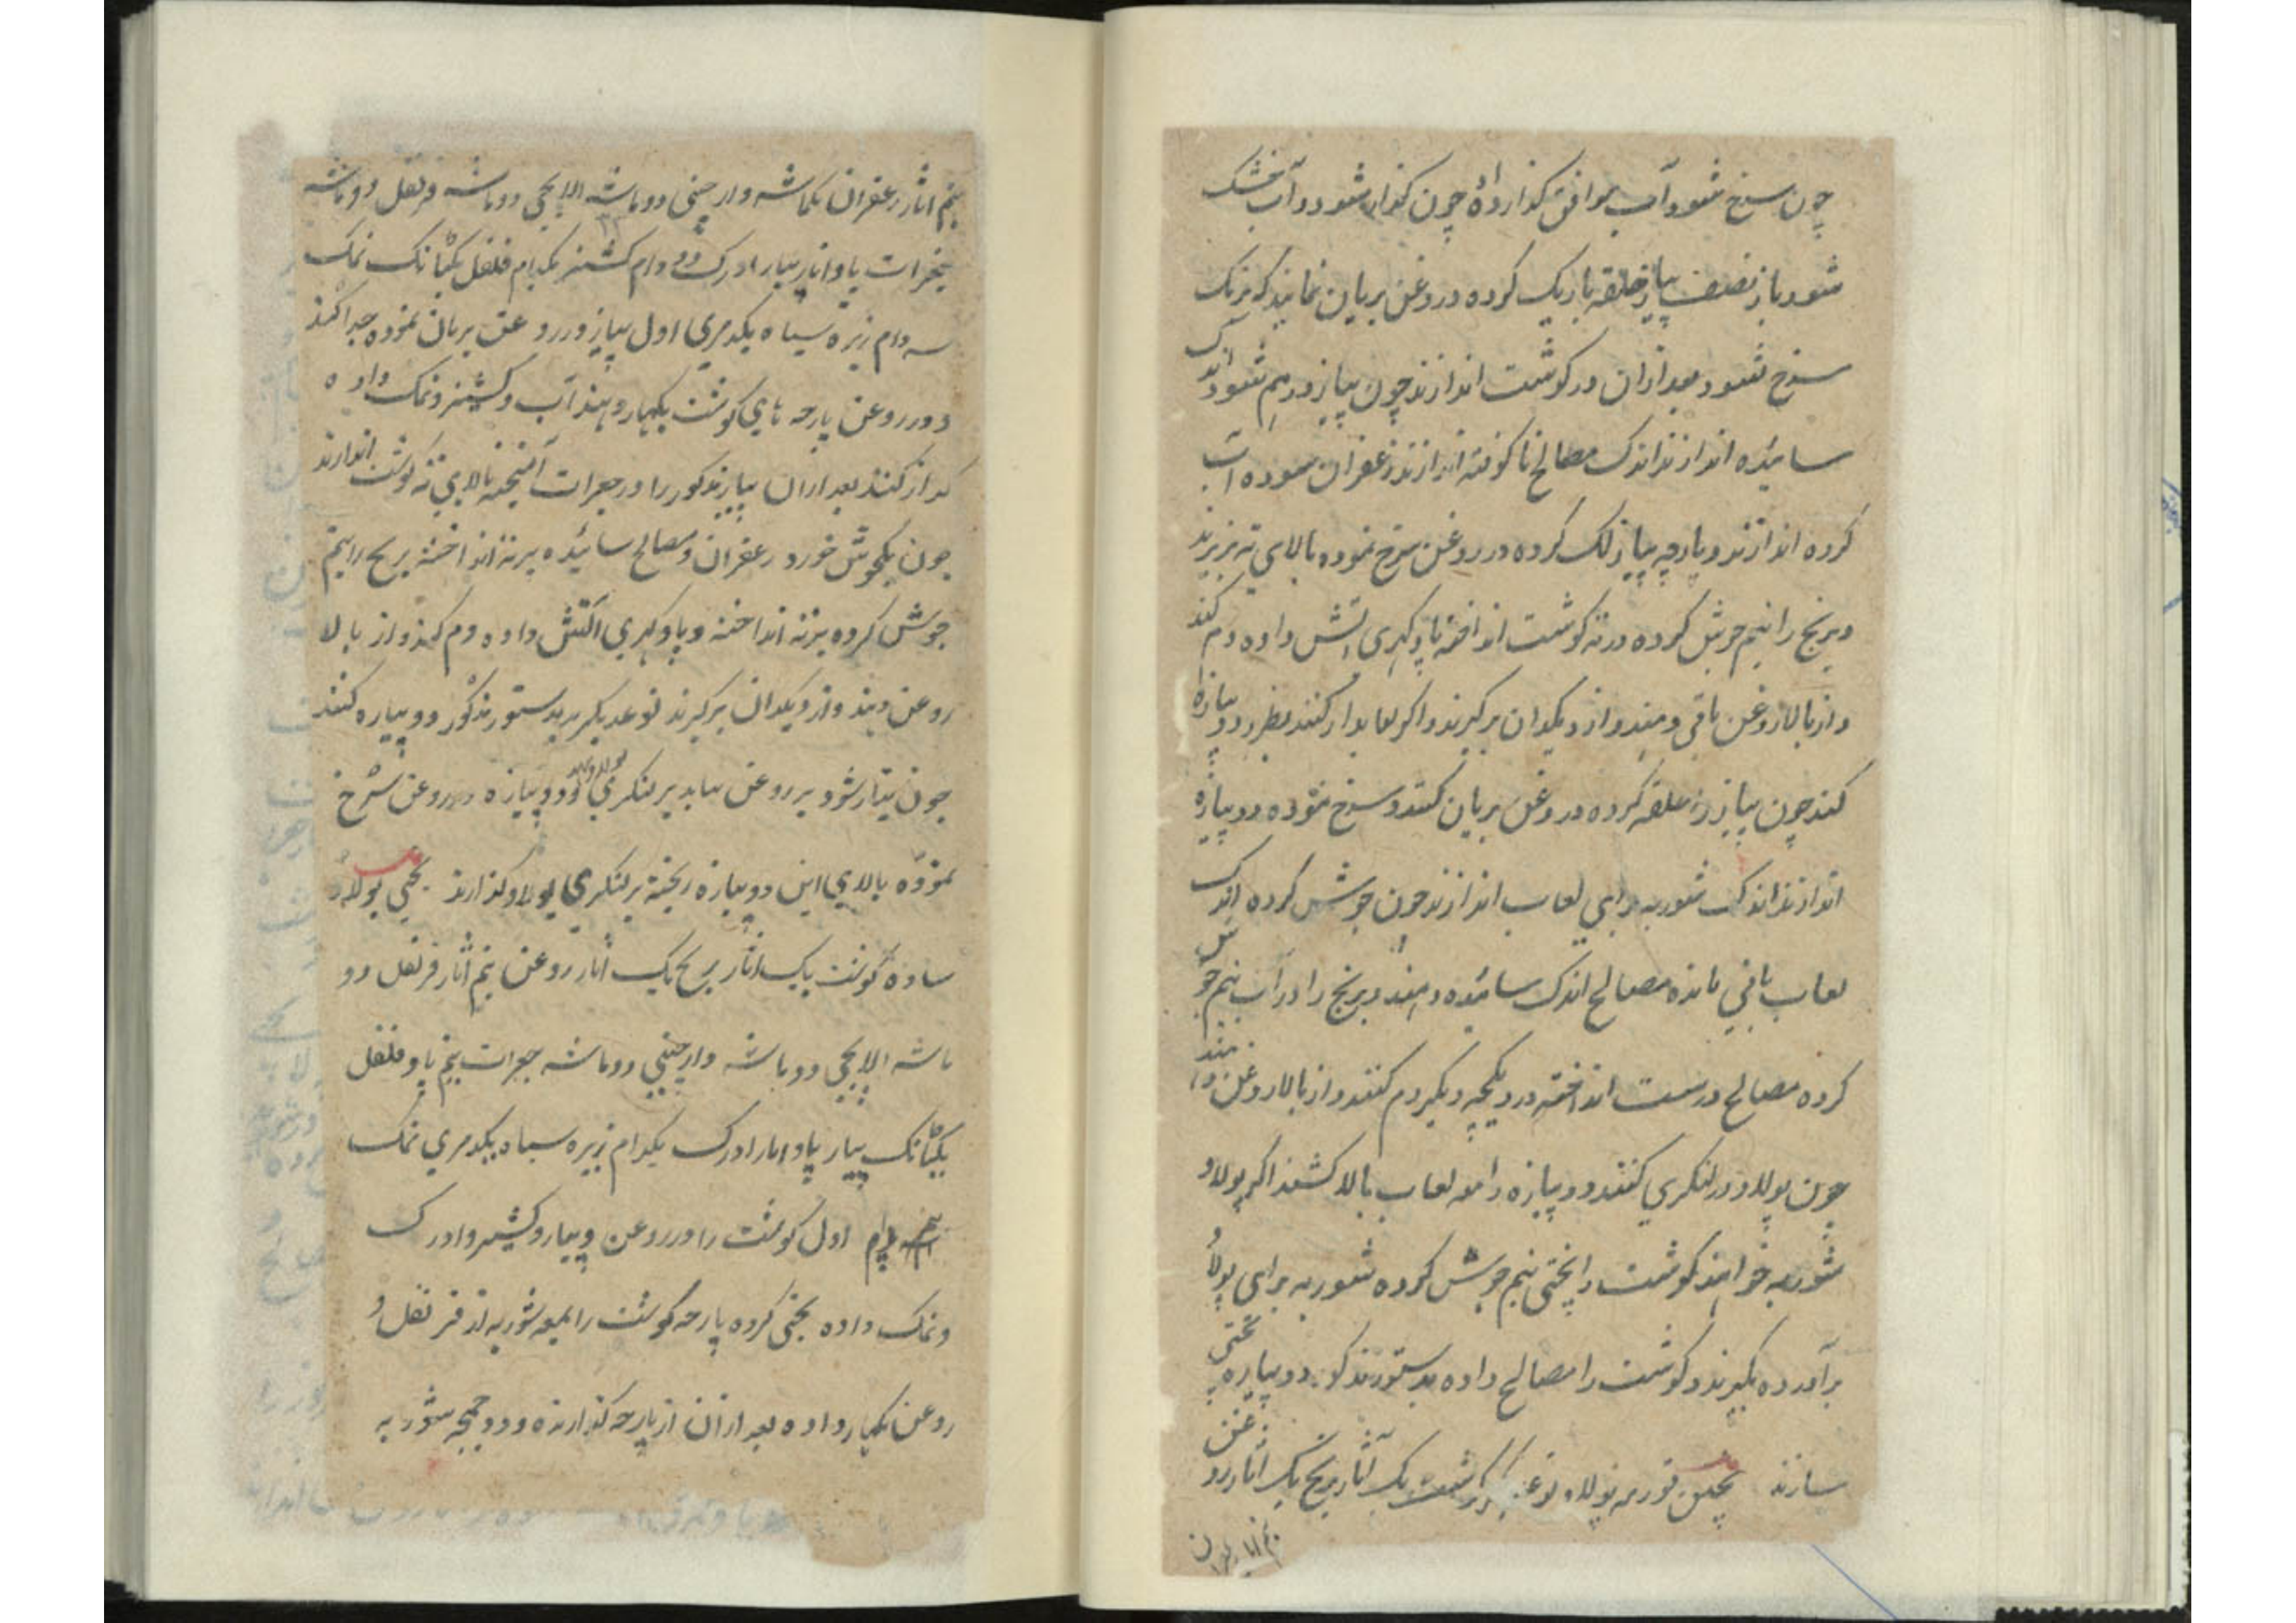 چون سرخ شود آب موافق گذارده چون گداز شود و آب خشک
شود باز نصف پیاز حلقه باریک کرده در روغن بریان نمایند که برنک
سرخ شود بعد ازان در کوشت اندازند چون پیاز درهم شود اندک
سائیده اندازند اندک مصالح ناکوفته اندازند زعفران سوده آب
کرده اندازند و پارچه پیاز لک کرده در روغن سرخ نموده بالای ته بریزند
و برنج را نیم جوش کرده در ته کوشت انداخته تا پاو کهری آتش داده دم کنند
و از بالا روغن باقی دهند و از دیکدان برکیرند و اکر لعابدار کنند بطور دوپیازه
کنند چون پیاز را حلقه کرده در روغن بریان کنند و سرخ نموده دوپیازه
اندازند اندک شوربه برای لعاب اندازند چون جوش کرده اندک
لعاب باقی مانده مصالح اندک سائیده دهند و برنج را در آب نیم جوش
کرده مصالح درست انداخته در دیکچه دیکر دم کنند و از بالا روغن دهند
چون پولاو در لنکری کنند دوپیازه را معه لعاب بالا کشند اکر پولاو
شوربه خواهند کوشت را یخنی نیم جوش کرده شوربه برای پولاو
برآورده بکیرند و کوشت را مصالح داده بدستور مذکور دوپیازه یخنی
سازند پختن قورمه پولاو کوشت یک آثار برنج یک آثار روغن
نیم آثار زعفران
نیم آثار زعفران یکماشه دارچینی دو ماشه الایچی دو ماشه قرنفل دو ماشه
جغرات پاو آثار پیاز ادرک دو دام کشنیز یکدام فلفل یکتانک نمک
سه دام زیره سیاه یکدمری اول پیاز در روغن بریان نموده جدا کنند
و در روغن پارچه های کوشت بکهار دهند آب و کشنیز و نمک داده
کداز کنند بعد ازان پیاز مذکور را در جغرات آمیخته بالای ته کوشت اندازند
چون یکجوش خورد زعفران و مصالح سائیده بر ته انداخته برنج را نیم
جوش کرده بر ته انداخته و پاو کهری آتش داده دم کنند و از بالا
روغن دهند و از دیکدان برکیرند نوعدیکر بدستور مذکور دوپیازه کنند
چون تیار شود بر روغن بیاید بر لنکری دوپیازه در روغن سرخ
نموده بالای این دوپیازه ریخته بر لنکری پولاو کذارند یخنی پولاو
ساده کوشت یک آثار برنج یک آثار روغن نیم آثار قرنفل دو
ماشه الایچی دو ماشه دارچینی دو ماشه جغرات نیم پاو فلفل
یکتانک پیاز پاو آثار ادرک یکدام زیره سیاه یکدمری نمک
دام اول کوشت را در روغن و پیاز و کشنیز و ادرک
و نمک داده یخنی کرده پارچه کوشت را بمعه شوربه از قرنفل و
روغن بکهار داده بعد ازان از پارچه کذارنده و دو چمچه شوربه